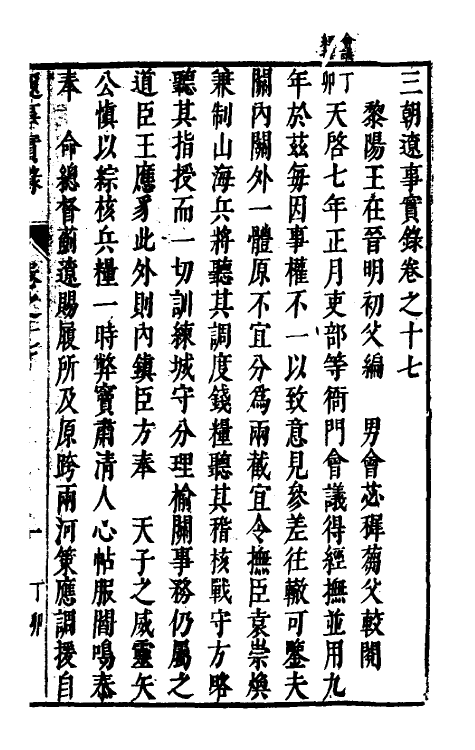 會議
三朝遼事實錄卷之十七
黎陽王在晉明初父編　男會苾穉蒭父較閱
丁卯
天啓七年正月吏部等衙門會議得經撫並用九
年於茲每因事權不一以致意見參差往轍可鑒夫
關內關外一體原不宜分為兩截宜令撫臣袁崇煥
兼制山海兵將聽其調度錢糧聽其稽核戰守方略
聽其指授而一切訓練城守分理榆關事務仍屬之
道臣王應豸此外則內鎮臣方奉　天子之威靈矢
公慎以綜核兵糧一時弊竇肅清人心帖服閻鳴泰
奉　命總督薊遼賜履所及原跨兩河策應調援自
遼事實錄
卷之十七
一
丁卯